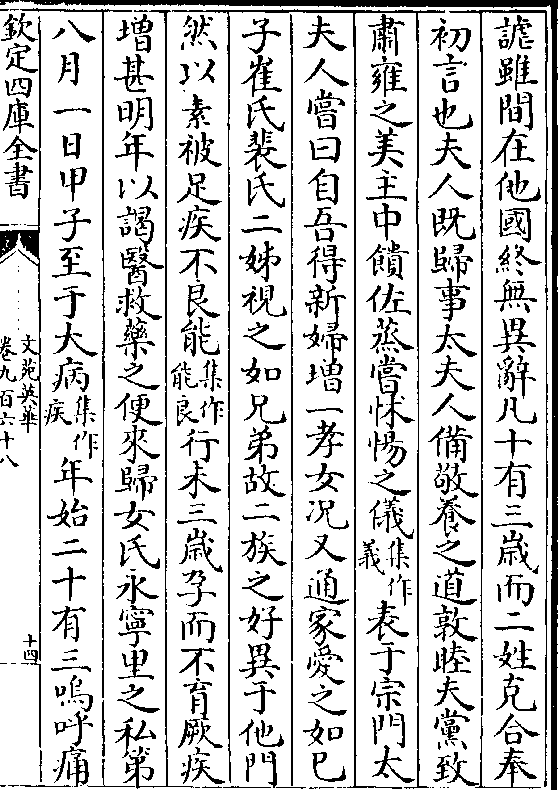 謔雖間在他國終無異辭凡十有三歲而二姓克合奉
初言也夫人既歸事太夫人備敬養之道敦睦夫黨致
肅雍之美主中饋佐蒸嘗怵惕之儀集作義表于宗門太
夫人嘗曰自吾得新婦增一孝女况又通家愛之如已
子崔氏裴氏二姊視之如兄弟故二族之好異于他門
然以素被足疾不良能集作能良行未三歲孕而不育厥疾
增甚明年以謁醫救藥之便來歸女氏永寧里之私第
八月一日甲子至于大病集作疾年始二十有三嗚呼痛
欽定四庫全書
文苑英華
卷九百六十八
十四